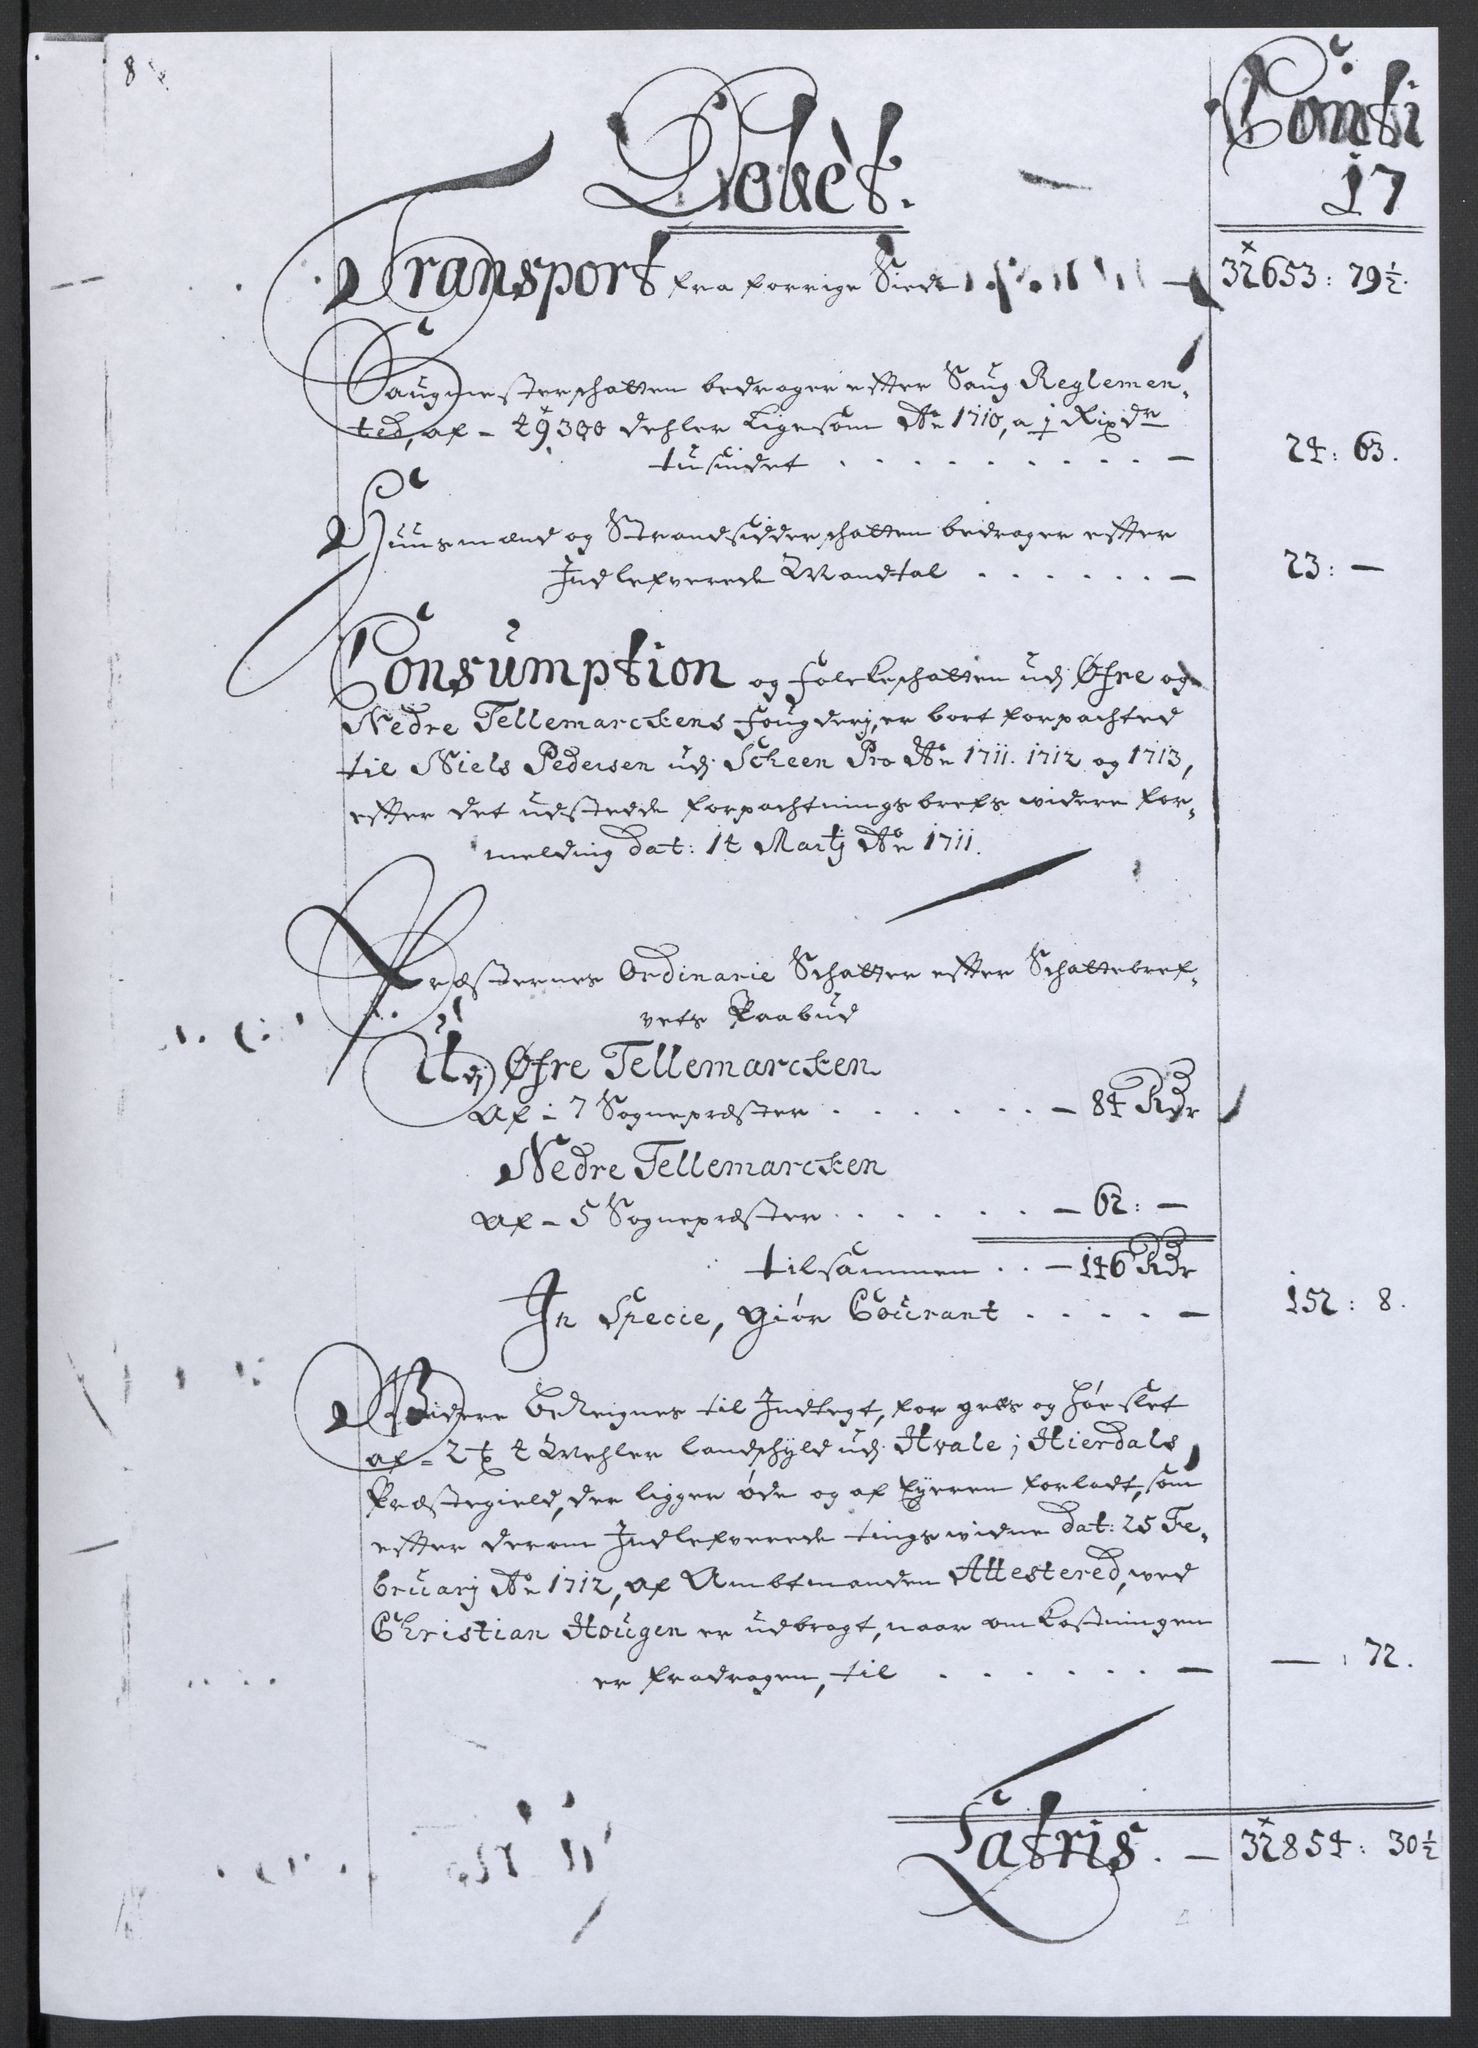 8
Debèt.
Conti
17
Transport fra forrige Siede — 32653: 79½.
Saugmesterschatten bedrager efter Saug Reglemen-
ted, af - 29300 dehler ligesom Ao 1710, a 1 Rixdr
tusindet . . . . . . . . . — 24: 63.
Huusmænd og Strandsidderschatten bedrager efter
Indlefverede Mandtal . . . . . . — 23: —
Consumption og folckeschatten udj Øfre og
Nedre Tellemarckens fougderj, er bort forpachted
til Niels Pedersen udj Scheen Pro Ao 1711. 1712 og 1713,
efter det udstedde forpachtningsbrefs widere for-
melding dat: 14 Martj Ao 1711.
Præsternes Ordinarie Schatter efter Schattebref-
vets Paabud
Udj Øfre Tellemarcken
af - 7 Sognepræster . . . . . . — 84 Rdr
Nedre Tellemarcken
af - 5 Sognepræster . . . . . . — 62: —
tilsammen . . — 146 Rdr
In Specie, giør Courant . . . . . — 152: 8.
Widere beReignes til Indtegt, for gres og høe slet
af - 2 landschyld udj Hvale j Hierdals
Præstegield, der ligger øde og af Eyeren forladt, som
efter derom Indlefverede tingswidne dat: 25 Fe-
bruarj Ao 1712, af Ambtmanden Attestered, wed
Christian Hougen er udbragt, naar omkostningen
er fradragen, til . . . . . . — — : 72.
Latris. — 32854: 30½